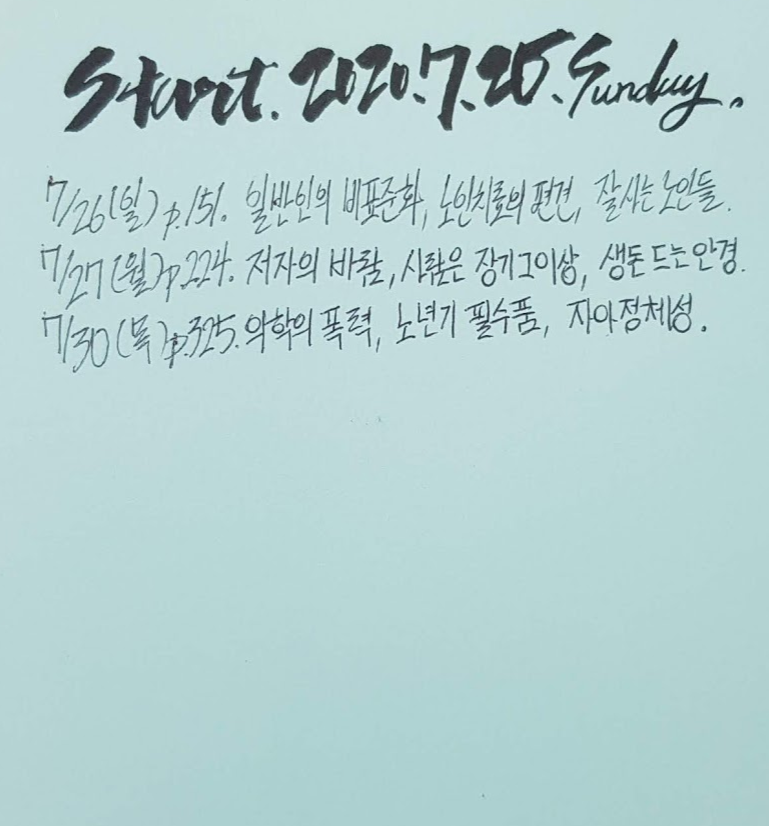 Start. 2020.7.25. Sunday.
7/26(일) p.151. 일반인의 비표준화, 노인치료의 편견, 잘사는 노인들.
7/27(월) p.224. 저자의 바람, 사람은 장기그이상, 생돈 드는 안경.
7/30(목) p.325. 의학의 폭력, 노년기 필수품, 자아정체성.